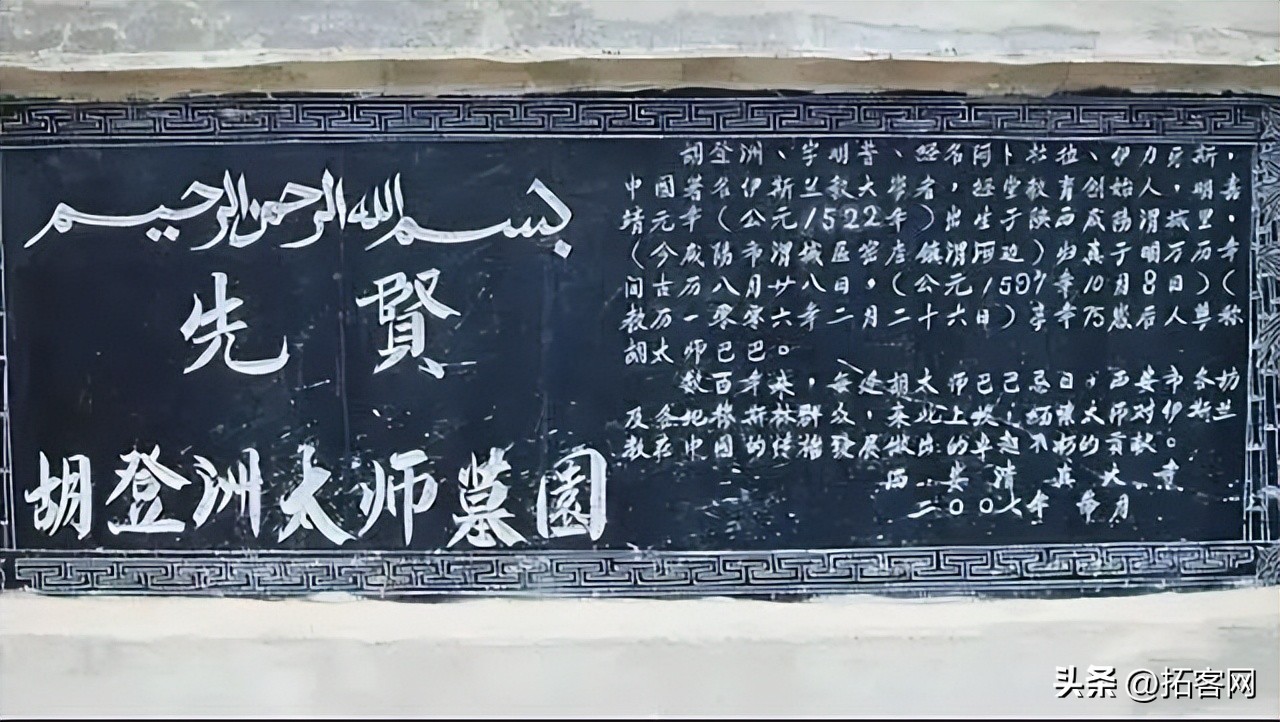 بسم الله الرحمن الرحيم
先賢
胡登洲太师墓園
胡登洲、字明普、经名阿卜杜拉、伊力牙斯，
中国著名伊斯兰教大学者，经堂教育创始人，明嘉
靖元年（公元1522年）出生于陕西咸阳渭城里，
（今咸阳市渭城区窑店镇渭河边）归真于明万历年
间古历八月廿八日，（公元1597年10月8日）（
教历一零零六年二月二十六日）享年75歲后人尊称
胡太师巴巴。
数百年来，每逢胡太师巴巴忌日，西安市各坊
及各地穆斯林群众，来此上坟，缅懷太师对伊斯兰
教在中国的传播發展做出的卓越不朽的貢献。
西安清真大寺
二00六年 月
头条 @拓客网